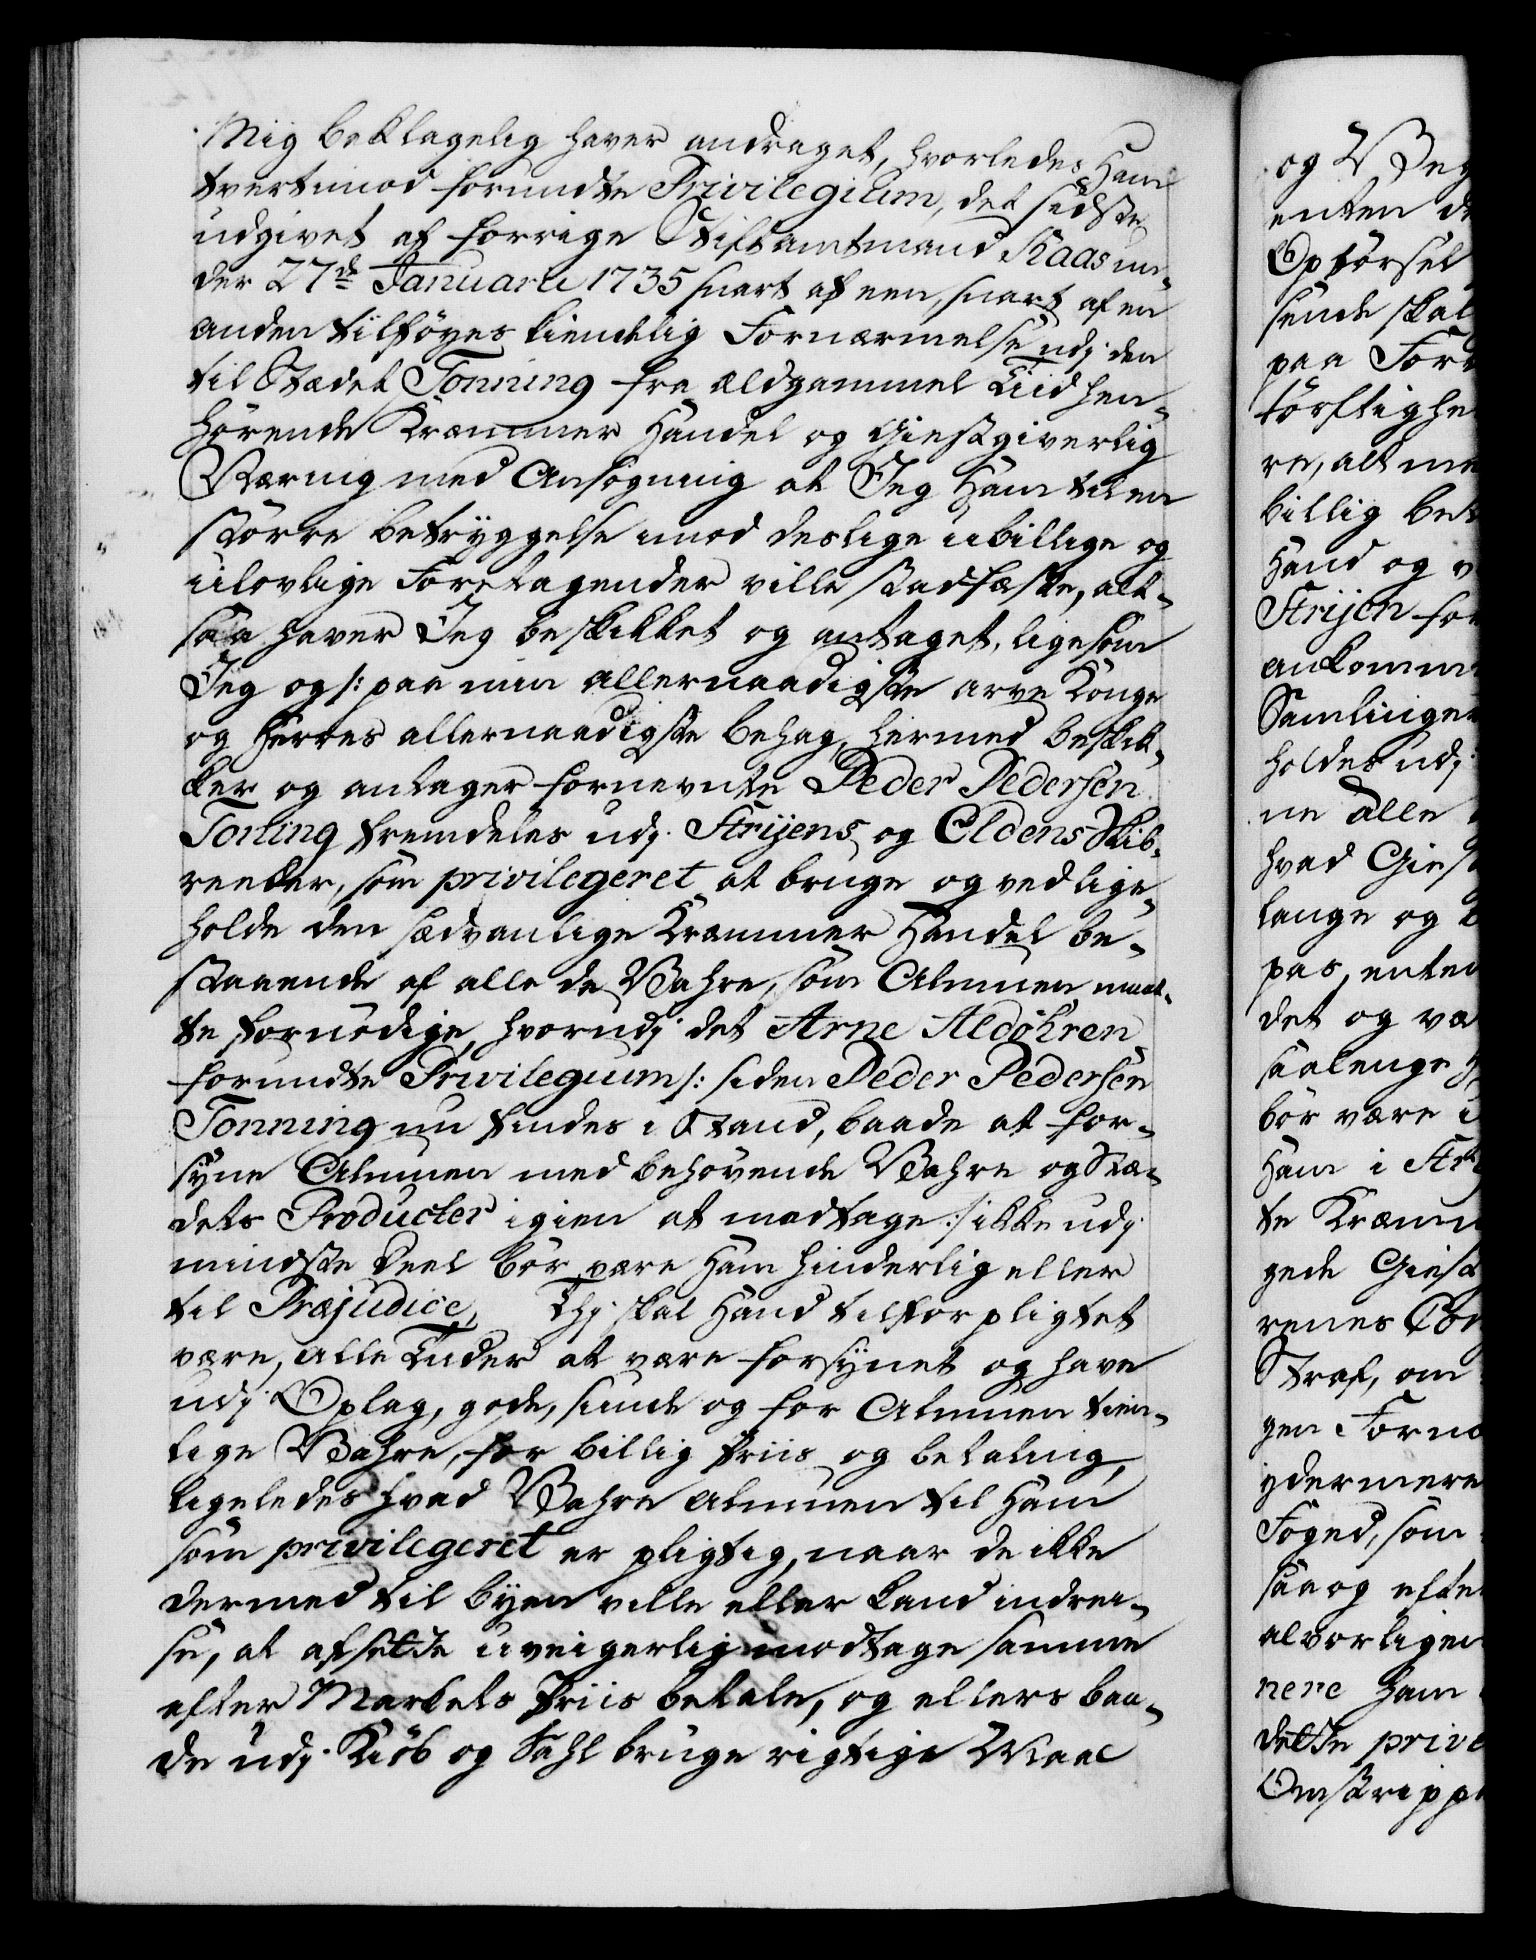 Mig beklagelig haver andraget, hvorledes Ham
tvertimod forundte Privilegium, det sidste
udgivet af forrige Stiftamtmand Kaas un-
der 27de Januarii 1735 snart af een, snart af en
anden tilföyes kiendelig Fornærmelse udj den
til Stædet Tonning fra ældgammel Tiid hen-
hörende Kræmmer Handel og Giestgiverlig
Næring med Ansögning at Jeg Ham til en
större betryggelse imod deslige ubillige og
ulovlige Foretagender ville stadfæste, alt-
saa haver Jeg beskikket og antaget, ligesom
Jeg og /: paa min allernaadigste arve Konge
og Herres allernaadigste behag, hermed beskik-
ker og antager fornevnte Peder Pedersen
Toning fremdeles udj Strijens og Eldens Skib-
reeder, som privilegeret at bruge og vedlige-
holde den sædvanlige Kræmmer Handel be-
staaende af alle de Vahre, som Almuen maat-
te fornödige, hvorudj det Arne Aldöhren
forundte Privilegium /: siden Peder Pedersen
Tonning nu findes i Stand, baade at for-
syne Almuen med behövende Vahre og Stæ-
dets Producter igien at modtage :/ ikke udj
mindste Deel bör være Ham hinderlig eller
til Præjudice, Thj skal Hand tilforpligtet
være, alle Tiider at være forsÿnet og have
udj Oplag, gode, sunde og for Almuen tien-
lige Vahre, for billig Priis og betaling,
ligeledes hvad Vahre Almuen til Ham
som privilegeret er pligtig, naar de ikke
dermed til byen ville eller kand indrei-
se, at afsette uveigerlig modtage samme
efter Markets Priis betale, og ellers baa-
de udj Kiöb og Sahl bruge rigtige Maal
og Veg
enten de
Opförsel
sende skal
paa For
törftighe
re, alt me
billig bet
Hand og
Strijen for
ankomm
Samlinger
holdes udj
ne alle
hvad Giest
lange og
pas, enten
det og væ
saalenge
bör være
Ham i Str
te Kræmm
gede Giest
renes Con
Straf, om
gen Forn
ydermere
Foged, som
saa og efte
alvorligen
nere Ham
dette prive
Omstrippe